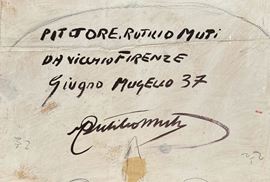 PITTORE. RUTILIO MUTI
DA VICCHIO FIRENZE
GIUGNO MUGELLO 37
Rutilio Muti